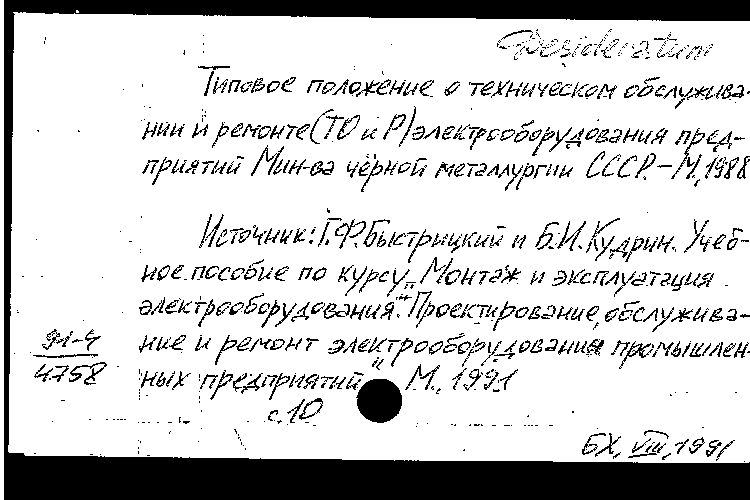 Desideratum
Типовое положение о техническом обслужива-
нии и ремонте (ТО и Р) электрооборудования пред-
приятий Мин-ва чёрной металлургии СССР. – М., 1988
Источник: Г.Ф. Быстрицкий и Б.И. Кудрин. Учеб-
ное пособие по курсу „Монтаж и эксплуатация
электрооборудования". „Проектирование, обслужива-
ние и ремонт электрооборудования промышлен-
ных предприятий" М., 1991
с. 10
91-4
4758
БХ, VIII, 1991